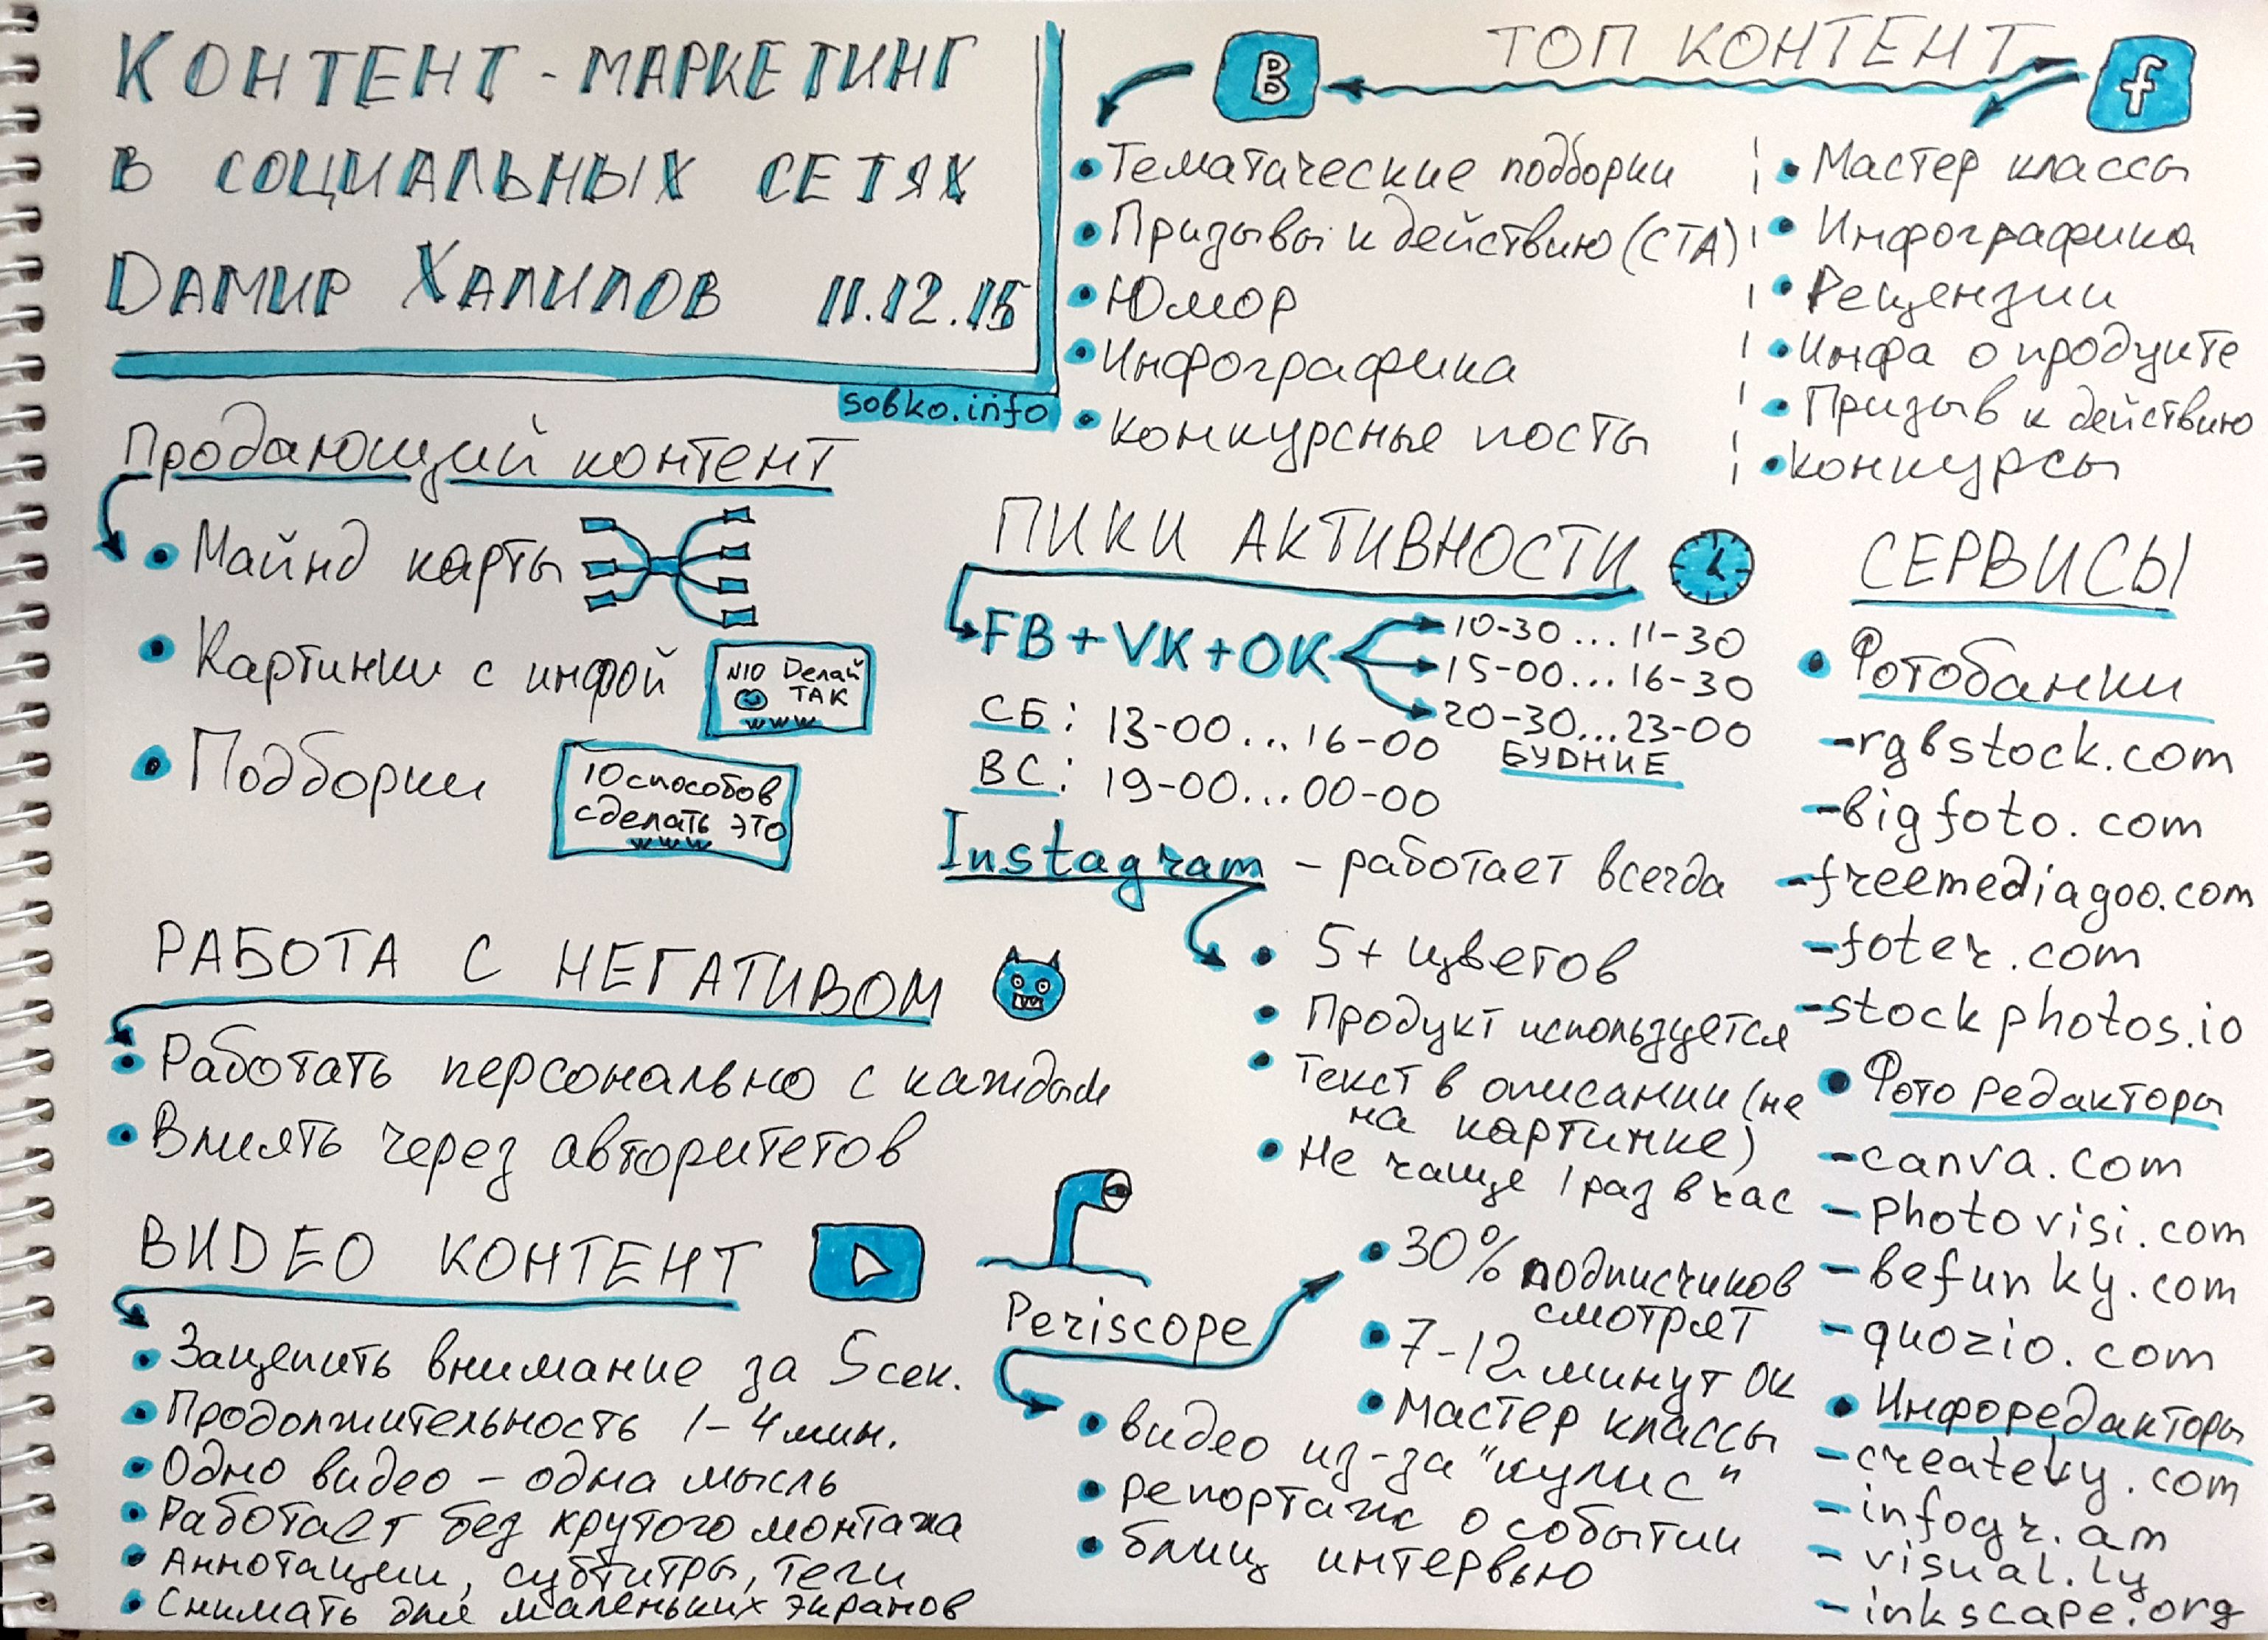 КОНТЕНТ-МАРКЕТИНГ
В СОЦИАЛЬНЫХ СЕТЯХ
DАМИР ХАЛИЛОВ 11.12.15
sobko.info
ТОП КОНТЕНТ
В
f
Тематические подборки
Призывы к действию (СТА)
Юмор
Инфографика
Конкурсные посты
Мастер классы
Инфографика
Рецензии
Инфа о продукте
Призыв к действию
Конкурсы
Продающий контент
Майнд карты
Картинки с инфой
№10 Делай
ТАК
www
Подборки
10 способов
сделать это
www
РАБОТА С НЕГАТИВОМ
Работать персонально с каждым
Влиять через авторитетов
ВИDЕО КОНТЕНТ
Зацепить внимание за 5 сек.
Продолжительность 1-4 мин.
Одно видео - одна мысль
Работает без крутого монтажа
Аннотации, субтитры, теги
Снимать для маленьких экранов
ПИКИ АКТИВНОСТИ
FB + VK + OK
10-30 ... 11-30
15-00 ... 16-30
20-30 ... 23-00
БУDНИЕ
СБ: 13-00 ... 16-00
ВС: 19-00 ... 00-00
Instagram - работает всегда
5+ цветов
Продукт используется
Текст в описании (не
на картинке)
Не чаще 1 раз в час
Periscope
30% подписчиков
смотрят
7-12 минут ОК
Мастер классы
видео из-за "кулис"
репортаж о событии
блиц интервью
СЕРВИСЫ
Фотобанки
-rgbstock.com
-bigfoto.com
-freemediagoo.com
-foter.com
-stockphotos.io
Фото редакторы
-canva.com
-photovisi.com
-befunky.com
-quozio.com
Инфоредакторы
-creately.com
-infogr.am
-visual.ly
-inkscape.org